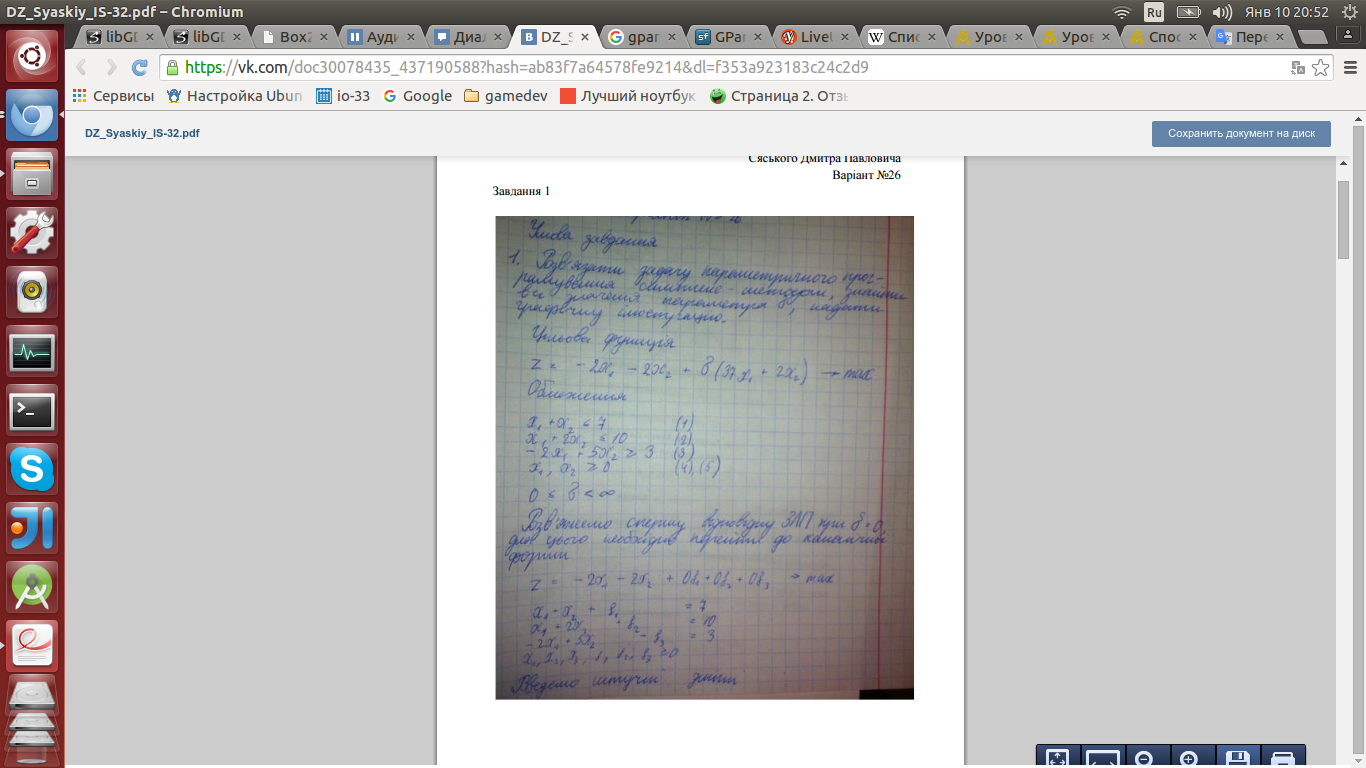 DZ_Syaskiy_IS-32.pdf – Chromium
Ru
Янв 10 20:52
libGD
libGD
Box2
Ауди
Диал
DZ_S
gpar
GPar
LiveU
Спис
Уров
Уров
Спос
Пере
https://vk.com/doc30078435_437190588?hash=ab83f7a64578fe9214&dl=f353a923183c24c2d9
Сервисы
Настройка Ubun
io-33
Google
gamedev
Лучший ноутбук
Страница 2. Отз
DZ_Syaskiy_IS-32.pdf
Сохранить документ на диск
Сяського Дмитра Павловича
Варіант №26
Завдання 1
Умова завдання
1. Розв'язати задачу параметричного прог-
рамування симплекс-методом, знайти
всі значення параметра δ, надати
графічну ілюстрацію.
Цільова функція
Z = - 2x₁ - 2x₂ + δ(37x₁ + 2x₂) → max
Обмеження
x₁ + x₂ ≤ 7 (1)
x₁ + 2x₂ ≤ 10 (2)
- 2x₁ + 5x₂ ≥ 3 (3)
x₁, x₂ ≥ 0 (4), (5)
0 ≤ δ < ∞
Розв'яжемо спершу відповідну ЗЛП при δ=0,
для цього необхідно перейти до канонічної
форми
Z = - 2x₁ - 2x₂ + 0 + 0 + 0 → max
= 7
= 10
- 2x₁ + 5x₂ = 3
Введемо штучні змінні